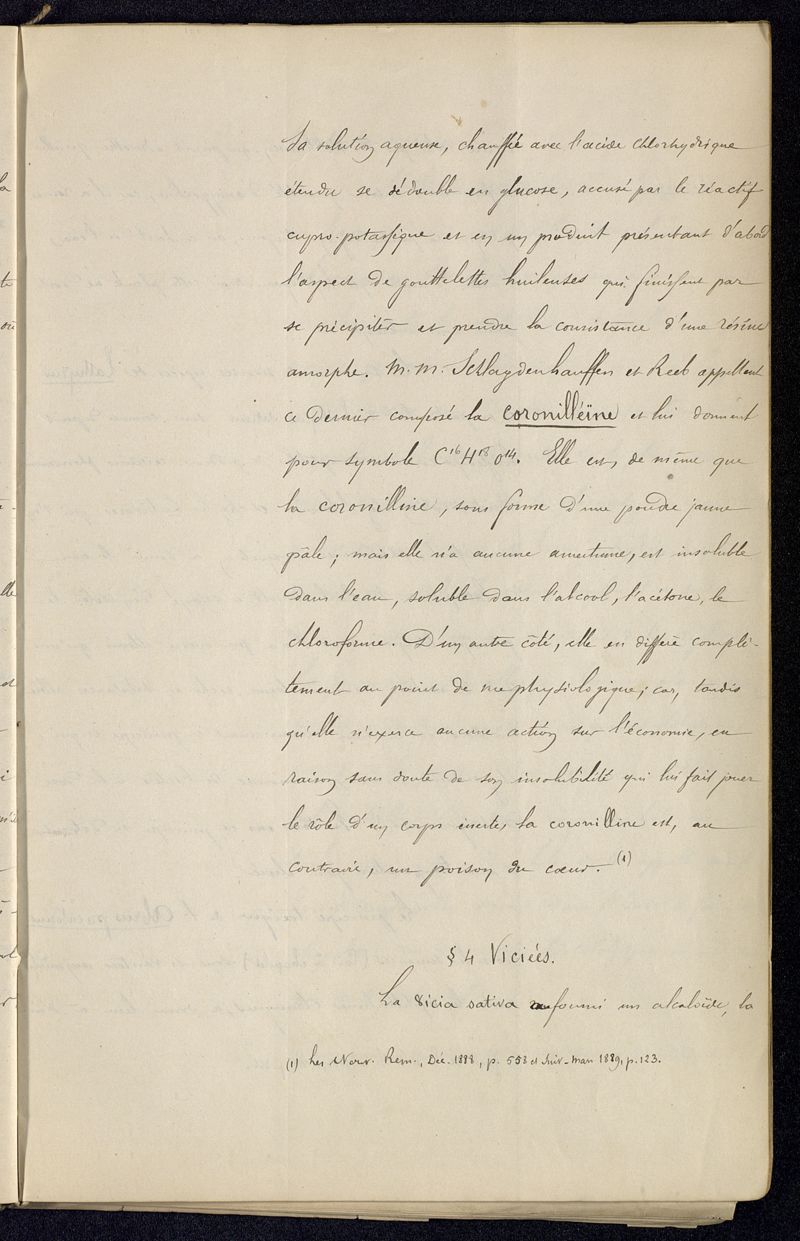 Sa solution aqueuse, chauffée avec l'acide chlorhydrique
étendu se dédouble en glucose, accusé par le réactif
cupro-potassique et en un produit présentant d'abord
l'aspect de gouttelettes huileuses qui finissent par
se précipiter et prendre la consistance d'une résine
amorphe. M.M. Schlagdenhauffen et Reeb appellent
ce dernier composé la coronilléïne et lui donnent
pour symbole C¹⁶H¹⁸O¹⁴. Elle est, de même que
la coronilline, sous forme d'une poudre jaune
pâle ; mais elle n'a aucune amertume, est insoluble
dans l'eau, soluble dans l'alcool, l'acétone, le
chloroforme. D'un autre côté, elle en diffère complè-
tement au point de vue physiologique ; car, tandis
qu'elle n'exerce aucune action sur l'économie, en
raison sans doute de son insolubilité qui lui fait jouer
le rôle d'un corps inerte, la coronilline est, au
contraire, un poison du cœur. (1)
§ 4 Viciées.
La Vicia sativa a fourni un alcaloïde, la
(1) Les Nouv. Rem., Déc. 1888, p. 558 et Suiv - Mars 1889, p. 123.